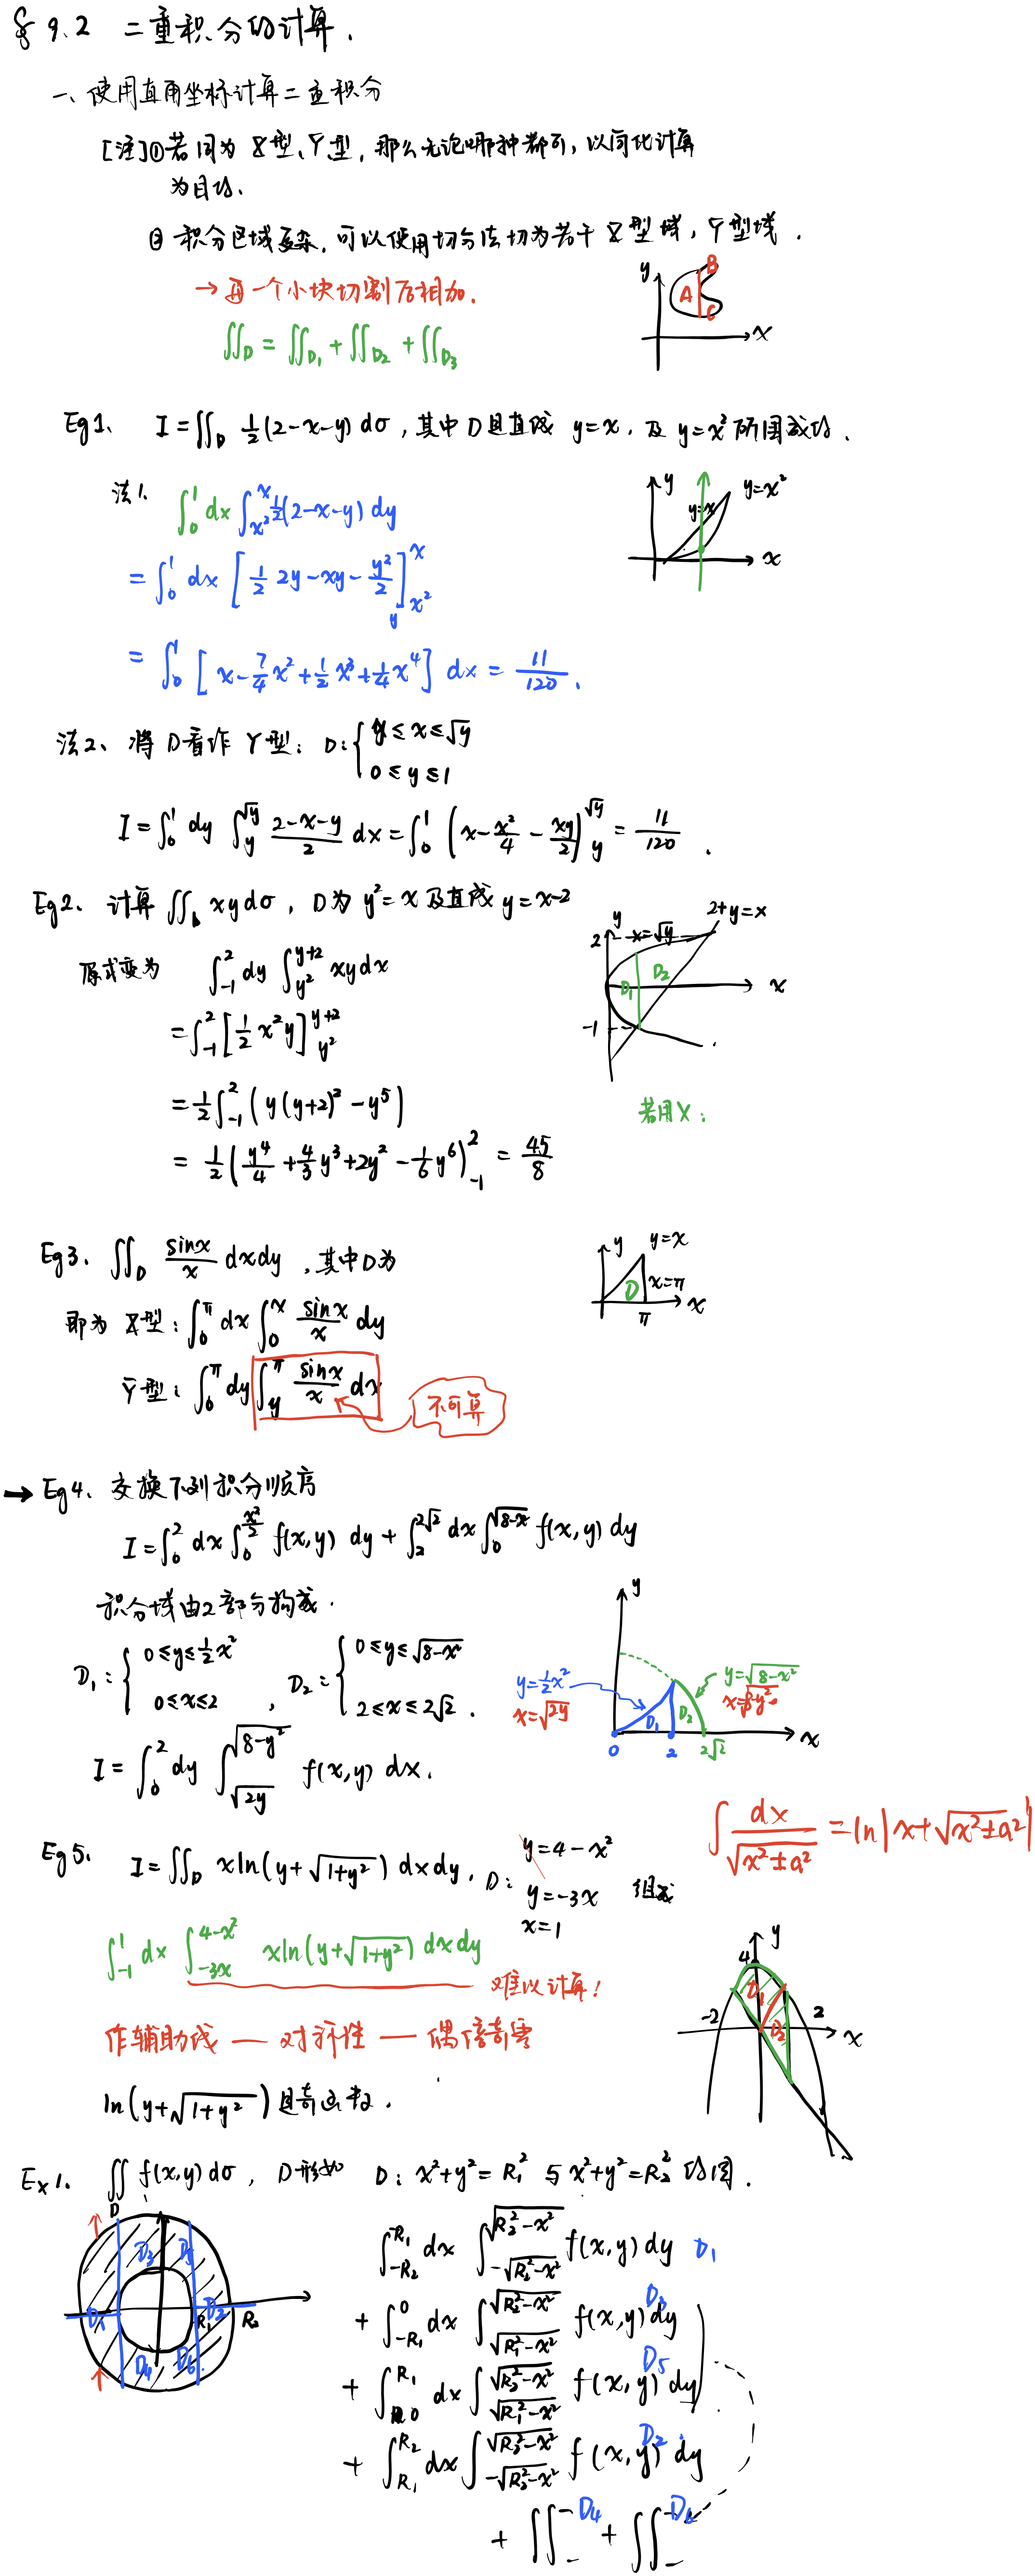 § 9.2 二重积分的计算.
一、使用直角坐标计算二重积分
[注]①若同为 X型、Y型, 那么无论哪种都可, 以简化计算
为目的.
② 积分区域复杂, 可以使用切分法切为若干 X型域, Y型域.
→ 每一个小块切割后相加.
∬_D = ∬_D₁ + ∬_D₂ + ∬_D₃
y
A
B
C
x
Eg1. I = ∬_D ½(2-x-y) dσ, 其中D是直线 y=x, 及 y=x² 所围成的.
法1. ∫₀¹ dx ∫_{x²}^{x} ½(2-x-y) dy
= ∫₀¹ dx [½ 2y-xy-y²/2]_{x²}^{x}
y
= ∫₀¹ [x-7/4 x²+½x³+¼x⁴] dx = 11/120.
y
y=x
y=x²
x
法2、将D看作Y型: D: { y ≤ x ≤ √y
0 ≤ y ≤ 1
I = ∫₀¹ dy ∫_y^{√y} (2-x-y)/2 dx = ∫₀¹ (x-x²/4-xy/2)_y^{√y} = 11/120.
Eg2. 计算 ∬_D xydσ, D为 y²=x 及直线 y=x-2
原式变为 ∫_{-1}^{2} dy ∫_{y²}^{y+2} xydx
= ∫_{-1}^{2} [½x²y]_{y²}^{y+2}
= ½∫_{-1}^{2} (y(y+2)²-y⁵)
= ½(y⁴/4+4/3 y³+2y²-1/6 y⁶)_{-1}^{2} = 45/8
y
2
x=√y
2+y=x
D₁
D₂
x
-1
若用X:
Eg3. ∬_D sinx/x dxdy, 其中D为
即为 X型: ∫₀^π dx ∫₀^x sinx/x dy
Y型: ∫₀^π dy ∫_y^π sinx/x dx
不可算
y
y=x
x=π
D
π
x
→ Eg4. 交换下列积分顺序
I = ∫₀² dx ∫₀^{x²/2} f(x,y) dy + ∫₂^{2√2} dx ∫₀^{√(8-x²)} f(x,y) dy
积分域由2部分构成.
D₁: { 0≤y≤½x²
0≤x≤2 , D₂: { 0≤y≤√(8-x²)
2≤x≤2√2.
I = ∫₀² dy ∫_{√2y}^{√(8-y²)} f(x,y) dx.
y
y=½x²
x=√2y
y=√(8-x²)
D₁
D₂
0
2
2√2
x
∫ dx/√(x²±a²) = ln|x+√(x²±a²)|
Eg5. I = ∬_D xln(y+√(1+y²)) dxdy, D: y=4-x²
y=-3x 组成
x=1
∫_{-1}^{1} dx ∫_{-3x}^{4-x²} xln(y+√(1+y²)) dxdy
难以计算!
作辅助线 — 对称性 — 偶倍奇零
ln(y+√(1+y²)) 是奇函数.
4
y
D₁
D₂
-2
2
x
Ex1. ∬_D f(x,y)dσ, D形如 D: x²+y²=R₁² 与 x²+y²=R₂² 的围.
D₃
D₅
D₁
D₂
R₁
R₂
D₄
D₆
∫_{-R₂}^{-R₁} dx ∫_{-√(R₂²-x²)}^{√(R₂²-x²)} f(x,y) dy D₁
+ ∫_{-R₁}^{0} dx ∫_{√(R₁²-x²)}^{√(R₂²-x²)} f(x,y) dy D₃
+ ∫_{0}^{R₁} dx ∫_{√(R₁²-x²)}^{√(R₂²-x²)} f(x,y) dy D₅
+ ∫_{R₁}^{R₂} dx ∫_{-√(R₂²-x²)}^{√(R₂²-x²)} f(x,y) dy D₂
+ ∬ D₄ + ∬ D₆